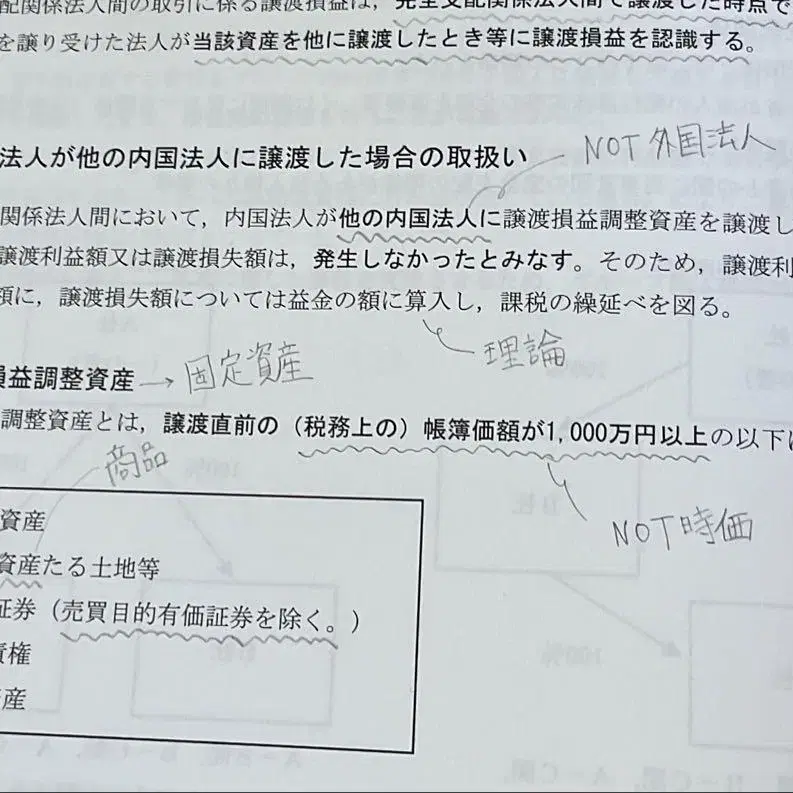 配関係法人間の取引に係る譲渡損益は，完全支配関係法人間で譲渡した時点で
を譲り受けた法人が当該資産を他に譲渡したとき等に譲渡損益を認識する。
法人が他の内国法人に譲渡した場合の取扱い
NOT 外国法人
関係法人間において，内国法人が他の内国法人に譲渡損益調整資産を譲渡し
譲渡利益額又は譲渡損失額は，発生しなかったとみなす。そのため，譲渡利
額に，譲渡損失額については益金の額に算入し，課税の繰延べを図る。
理論
損益調整資産 → 固定資産
調整資産とは，譲渡直前の（税務上の）帳簿価額が1,000万円以上の以下
商品
NOT時価
資産
資産たる土地等
証券（売買目的有価証券を除く。）
債権
産